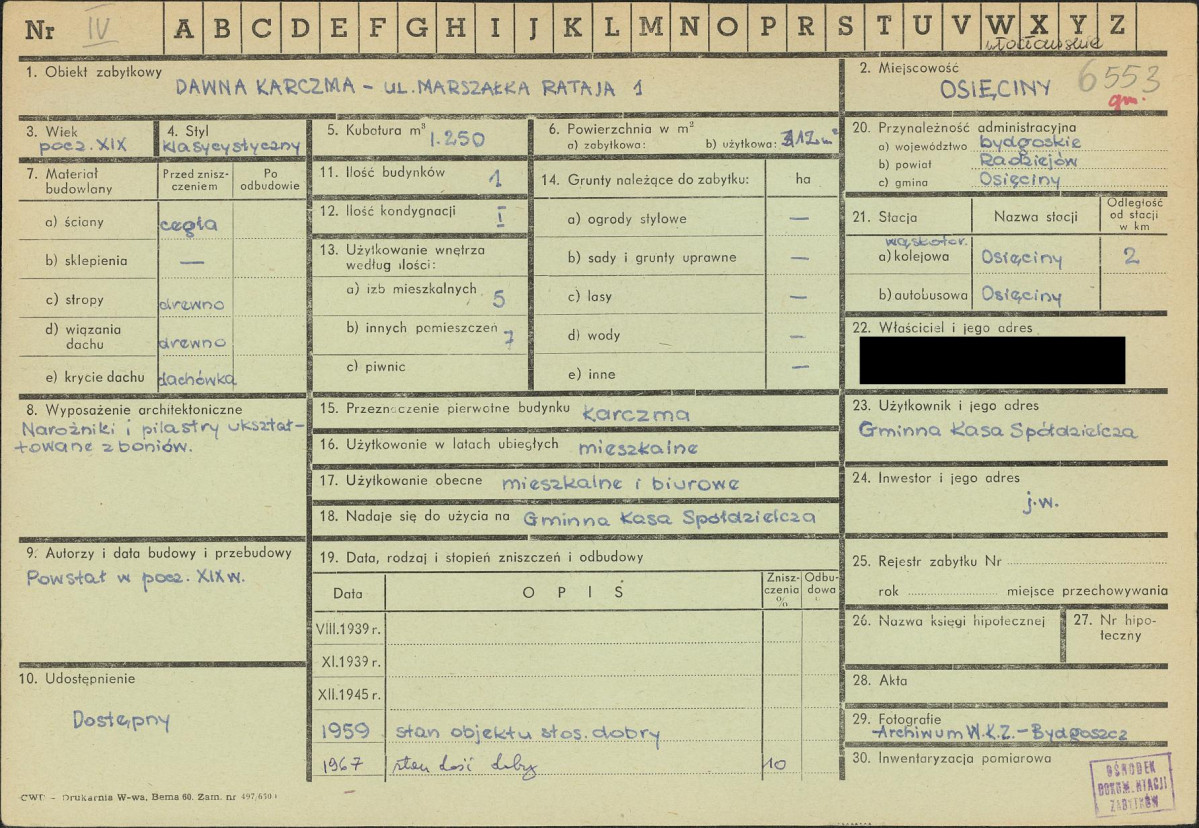 Nr IV A B C D E F G H I J K L M N O P R S T U V W X Y Z
włocławskie
1. Obiekt zabytkowy
DAWNA KARCZMA – UL. MARSZAŁKA RATAJA 1
2. Miejscowość
OSIĘCINY
6553
gm.
3. Wiek
pocz. XIX
4. Styl
klasycystyczny
5. Kubatura m³
1.250
6. Powierzchnia w m²
a) zabytkowa: b) użytkowa: 312 m²
7. Materiał budowlany
Przed zniszczeniem
Po odbudowie
a) ściany cegła
b) sklepienia —
c) stropy drewno
d) wiązania dachu drewno
e) krycie dachu dachówka
8. Wyposażenie architektoniczne
Narożniki i pilastry ukształ-
towane z boniów.
9. Autorzy i data budowy i przebudowy
Powstał w pocz. XIX w.
10. Udostępnienie
Dostępny
11. Ilość budynków 1
12. Ilość kondygnacji I
13. Użytkowanie wnętrza
według ilości:
a) izb mieszkalnych 5
b) innych pomieszczeń 7
c) piwnic
14. Grunty należące do zabytku: ha
a) ogrody stylowe —
b) sady i grunty uprawne —
c) lasy —
d) wody —
e) inne —
15. Przeznaczenie pierwotne budynku karczma
16. Użytkowanie w latach ubiegłych mieszkalne
17. Użytkowanie obecne mieszkalne i biurowe
18. Nadaje się do użycia na Gminna Kasa Spółdzielcza
19. Data, rodzaj i stopień zniszczeń i odbudowy
Data
OPIS
Zniszczenia %
Odbudowa
VIII.1939 r.
XI.1939 r.
XII.1945 r.
1959 stan objektu stos. dobry
1967 stan dość dobry 10
20. Przynależność administracyjna
a) województwo bydgoskie
b) powiat Radziejów
c) gmina Osięciny
21. Stacja
Nazwa stacji
Odległość od stacji w km
wąskotor.
a) kolejowa Osięciny 2
b) autobusowa Osięciny
22. Właściciel i jego adres
23. Użytkownik i jego adres
Gminna Kasa Spółdzielcza
24. Inwestor i jego adres
j.w.
25. Rejestr zabytku Nr
rok miejsce przechowywania
26. Nazwa księgi hipotecznej
27. Nr hipo-
teczny
28. Akta
29. Fotografie
Archiwum W.K.Z. – Bydgoszcz
30. Inwentaryzacja pomiarowa
OŚRODEK
DOKUMENTACJI
ZABYTKÓW
CWD – Drukarnia W-wa, Bema 60. Zam. nr